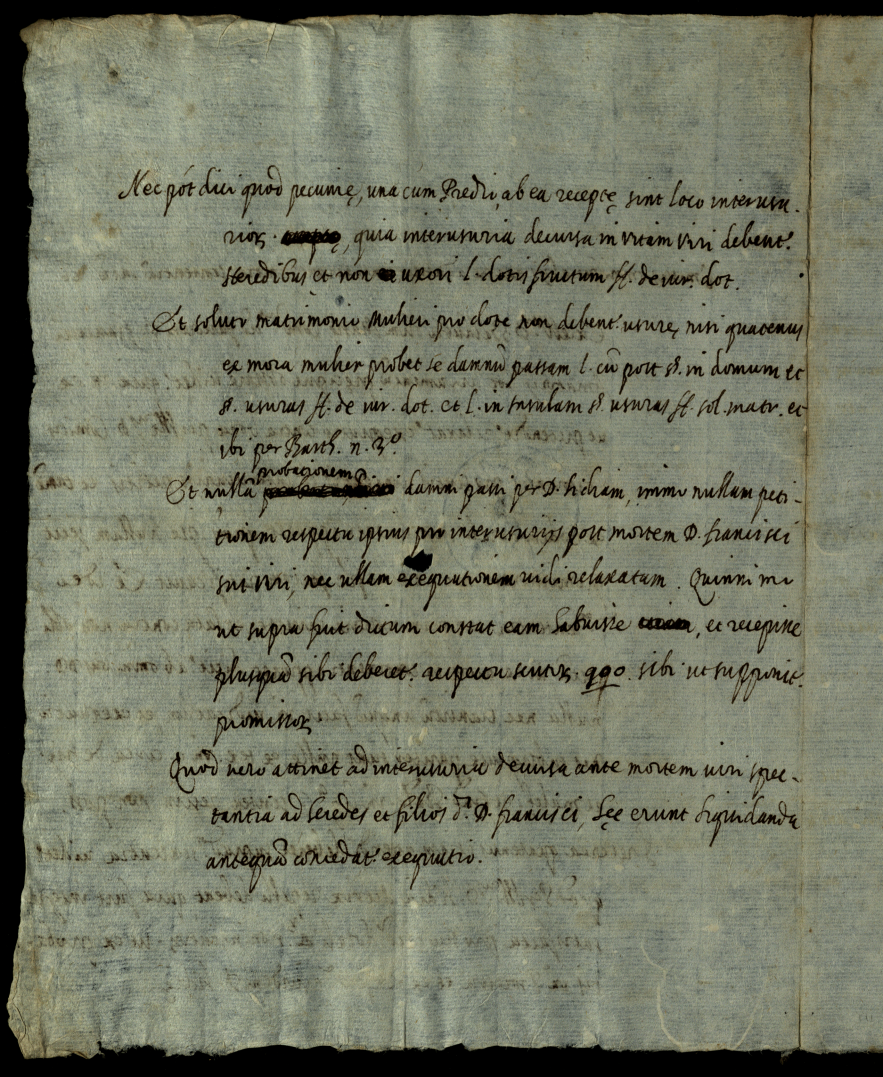 Nec põt dici quod pecunię, una cum Predii, ab ea receptę sint loco interusu-
rioȝ, quia interusuria decursa in vitam viri debent.
Heredibus et non uxori l. dotis fructum ff. de iur. dot.
Et soluto matrimonio Mulieri pro dote non debent. usurę nisi quatenus
ex mora mulier probet se damnũ passam l. cũ post §. in domum et
§. usuras ff. de iur. dot. et l. in insulam §. usuras ff. sol. matr. et
ibi per Barth. n. 3º.
Et nullã probationem damni passi per D. , immo nullam peti-
tionem respectu ipsius pro interusurijs post mortem D. francisci
sui viri, nec ullam exequutionem vidi relaxatam. Quinimmo
ut supra fuit dictum constat eam habuisse, et recepisse
plusquã sibi deberet. respectu scutoȝ. 990. sibi ut supponit.
promissoȝ
Quod vero attinet ad interusuria decursa ante mortem viri spec-
tantia ad heredes et filios d. D. francisci, hęc erunt liquidanda
antequã concedat. exequutio.